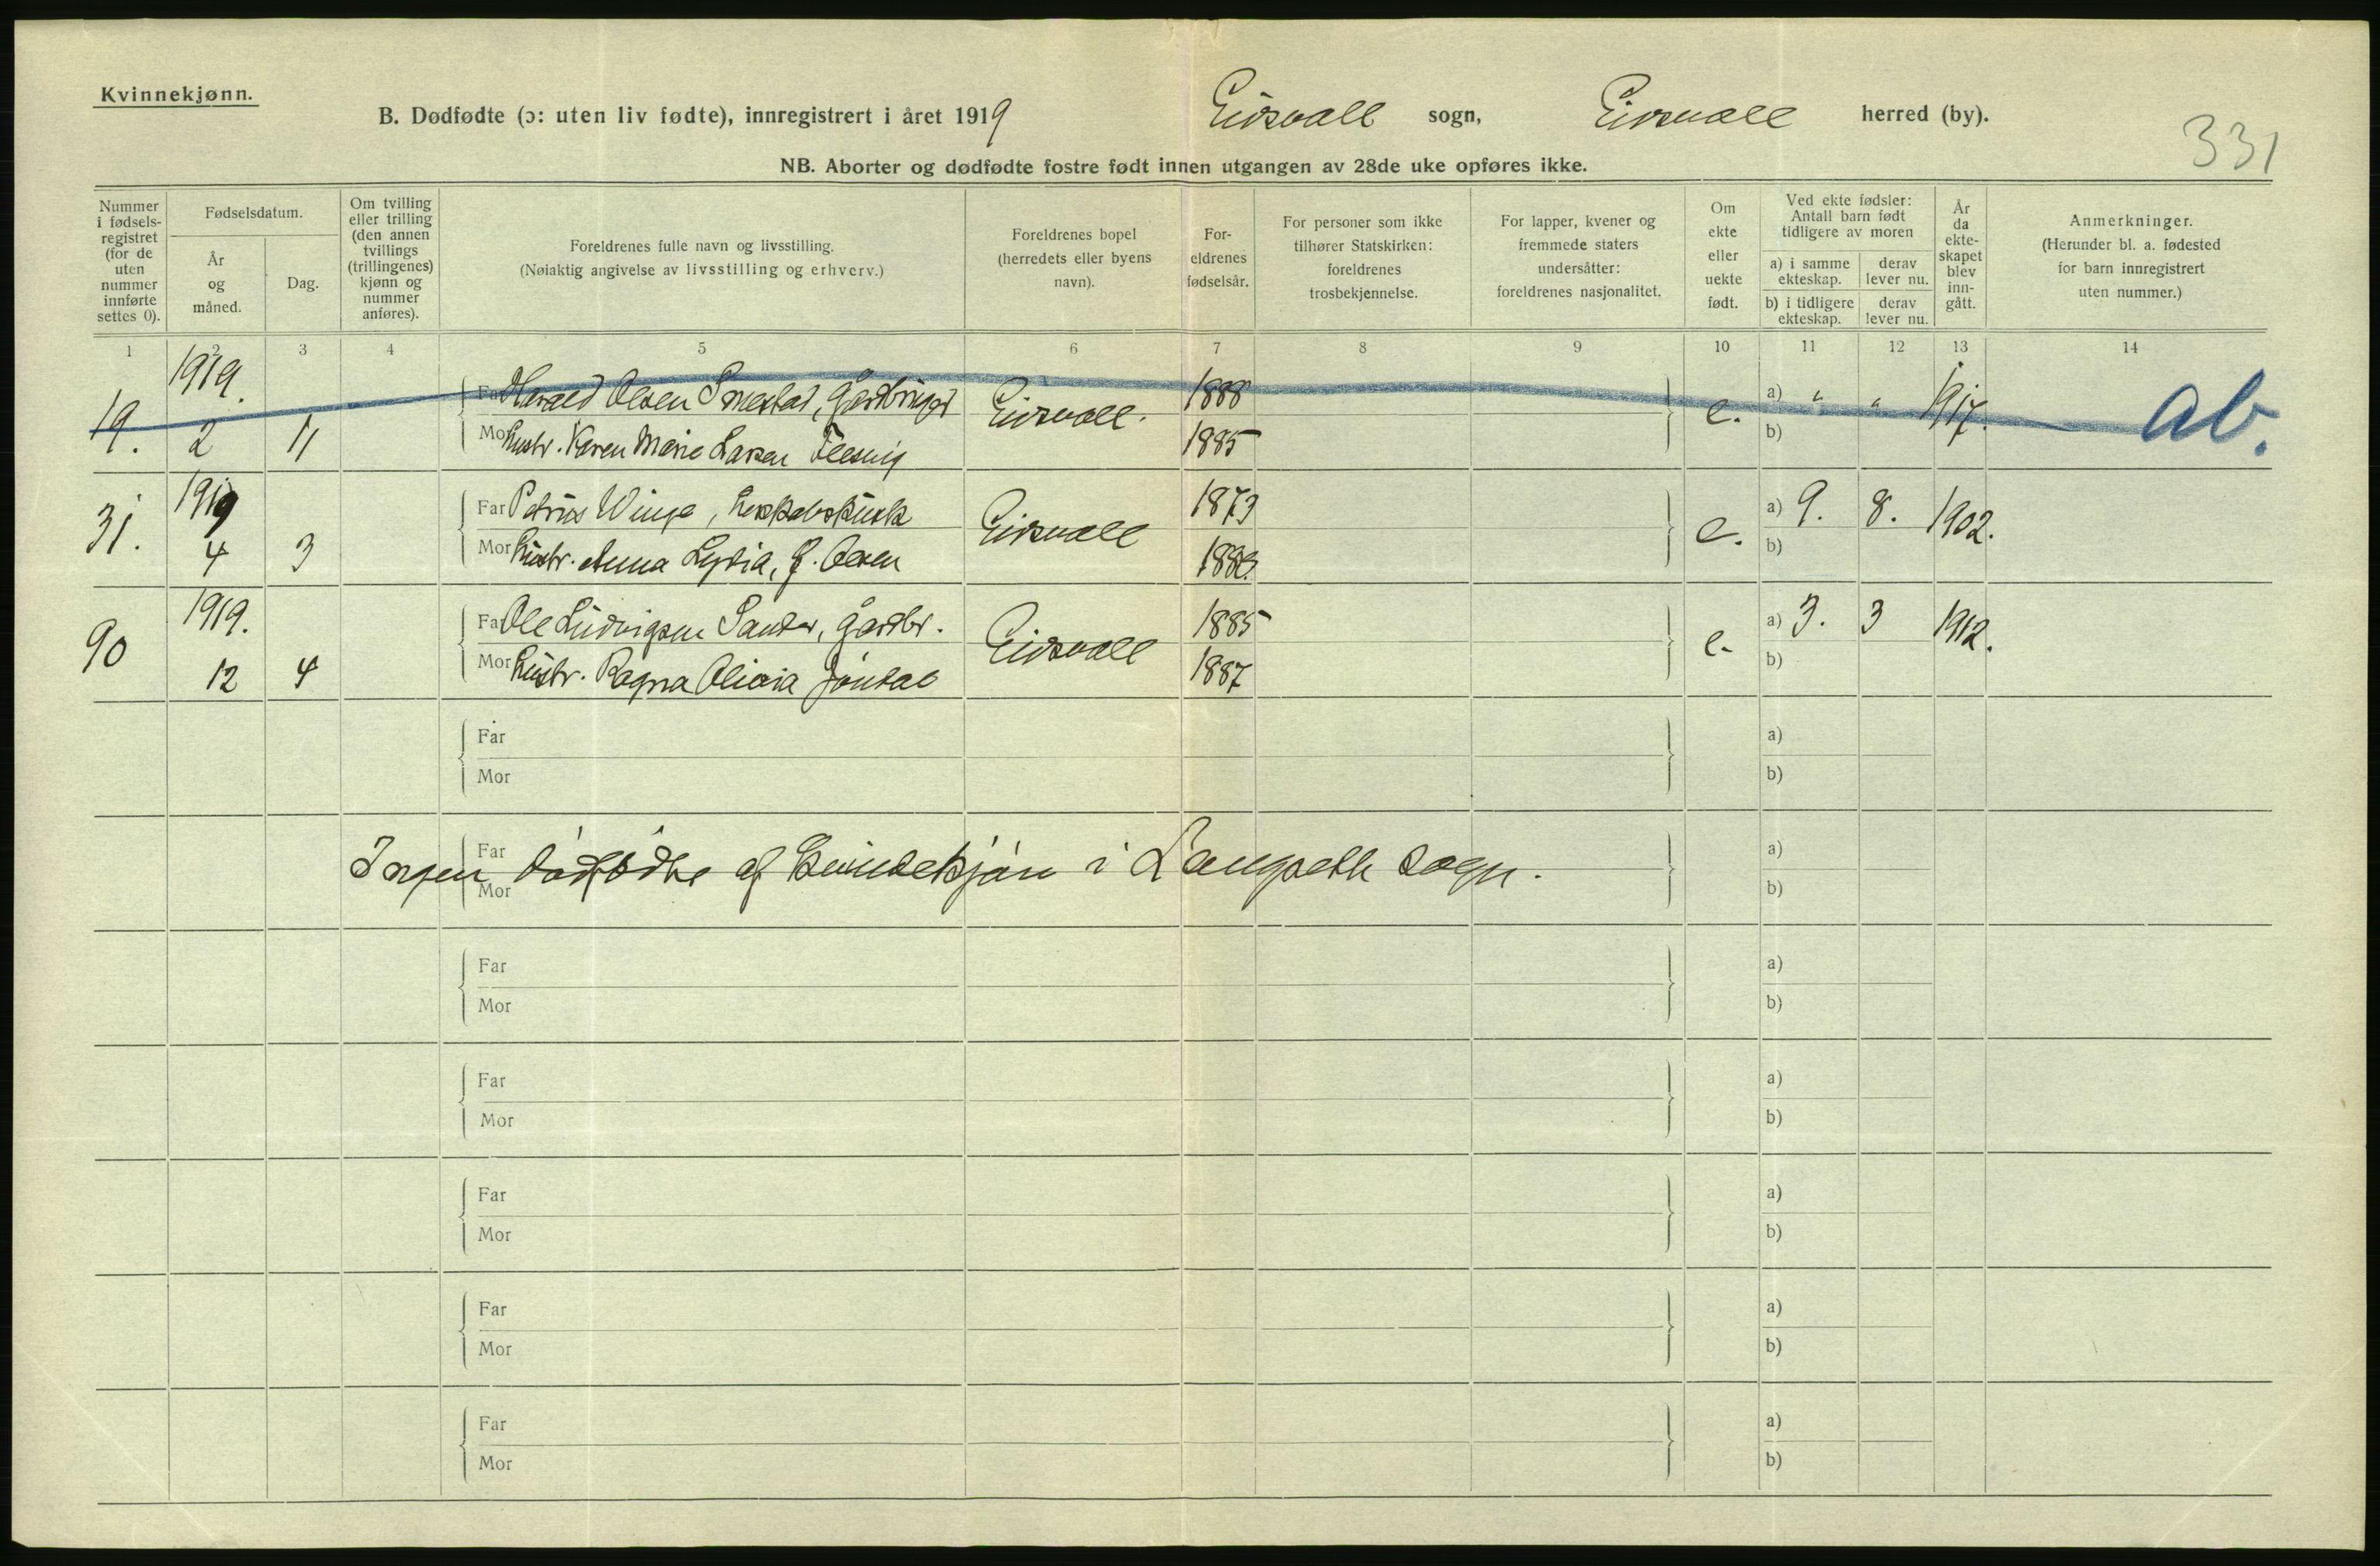 Kvinnekjønn.
B. Dødfødte (ɔ: uten liv fødte), innregistrert i året 1919 Eidsvoll sogn, Eidsvoll herred (by).
331
NB. Aborter og dødfødte fostre født innen utgangen av 28de uke opføres ikke.
Nummer i fødsels-registret (for de uten nummer innførte settes 0).
Fødselsdatum.
År og måned.
Dag.
Om tvilling eller trilling (den annen tvillings (trillingenes) kjønn og nummer anføres).
Foreldrenes fulle navn og livsstilling.
(Nøiaktig angivelse av livsstilling og erhverv.)
Foreldrenes bopel (herredets eller byens navn).
For-eldrenes fødselsår.
For personer som ikke tilhører Statskirken: foreldrenes trosbekjennelse.
For lapper, kvener og fremmede staters undersåtter: foreldrenes nasjonalitet.
Om ekte eller uekte født.
Ved ekte fødsler: Antall barn født tidligere av moren
a) i samme ekteskap. derav lever nu.
b) i tidligere ekteskap. derav lever nu.
År da ekte-skapet blev inn-gått.
Anmerkninger.
(Herunder bl. a. fødested for barn innregistrert uten nummer.)
1 2 3 4 5 6 7 8 9 10 11 12 13 14
1919.
Far Harald Olsen Smestad, gårdbruger 1888 a) " " 1917.
19. 2 11 Eidsvoll. e. ab.
Mor Hustr. Karen Marie Larsen 1885 b)
1919
Far Petrus Winge, 1873 a) 9. 8. 1902.
31. 4 3 Eidsvoll e.
Mor Hustr. Anna Lydia, f. Olsen b)
1919.
Far Ole Ludvigsen Sander, gårdbr. 1885 a) 3. 3 1912.
90 12 4 Eidsvoll e.
Mor Hustr. Ragna Olivia 1887 b)
Far a)
Mor b)
Far a)
Ingen dødfødte af kvindekjøn i Langseth sogn.
Mor b)
Far a)
Mor b)
Far a)
Mor b)
Far a)
Mor b)
Far a)
Mor b)
Far a)
Mor b)